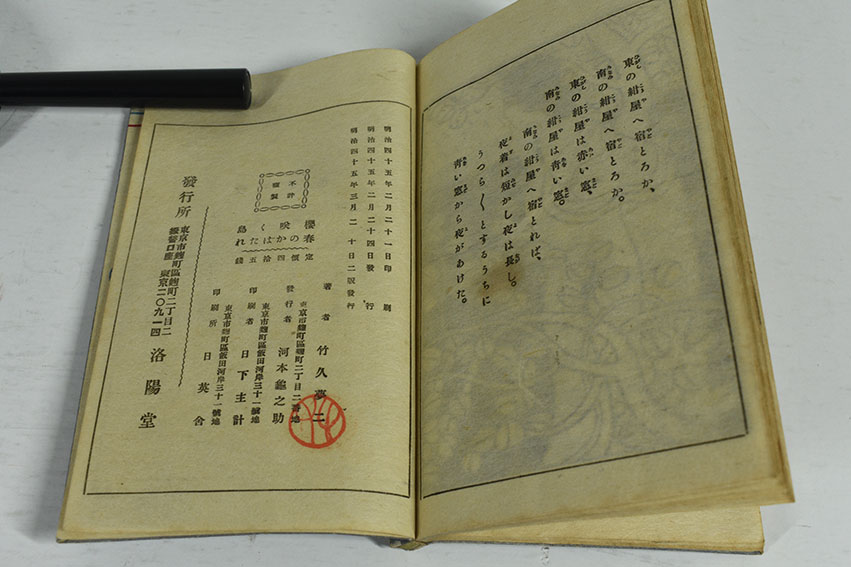 東の紺屋へ宿とろか、
南の紺屋へ宿とろか。
東の紺屋は赤い窓、
南の紺屋は青い窓。
南の紺屋へ宿とれば、
夜着は短かし夜は長し。
うつら〳〵とするうちに
青い窓から夜があけた。
明治四十五年二月二十一日印刷
明治四十五年二月二十四日發行
明治四十五年三月二十日二版發行
不許
複製
櫻咲く島
春のかはたれ
定價四拾五錢
著者 竹久夢二
東京市麹町區麹町二丁目二番地
發行者 河本龜之助
東京市麹町區飯田河岸三十一號地
印刷者 日下主計
東京市麹町區飯田河岸三十一號地
印刷所 日英舍
發行所
東京市麹町區麹町二丁目二
振替口座東京二〇九一四
洛陽堂